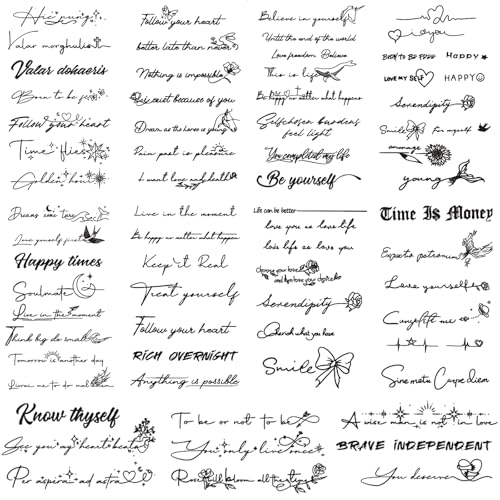 Valar morghulis
Valar dohaeris
Born to be
Follow your heart
Time flies
Golden hour
Follow your heart
better late than never
Nothing is impossible
because of you
Dream as the
Pain past is pleasure
I want love and death
Believe in yourself
Until the end of the world
Love freedom Believe
This is life
Be happy no matter what happens
Selfchosen burdens
feel light
You complet my life
Be yourself
i o you
BORN TO BE FREE
HAPPY
LOVE MY SELF
HAPPY
Serendipity
Smile
For myself
young
Dreams come true
Love yourself first
Happy times
Soulmate
Live in the moment
Think big do small
Tomorrow is another day
Live in the moment
Be happy no matter what happen
Keep it Real
Treat yourself
Follow your heart
RICH OVERNIGHT
Anything is possible
Life can be better
love you as love life
love life as love you
Serendipity
Cherish what you have
Smile
Time I$ Money
Expecto patronum
Love yourself
Complete me
Sine metu Carpe diem
Know thyself
See you my heart beats
Per aspera ad astra
To be or not to be
You only live once
Rose will bloom all the time
A wise man is not in love
BRAVE INDEPENDENT
You deserve